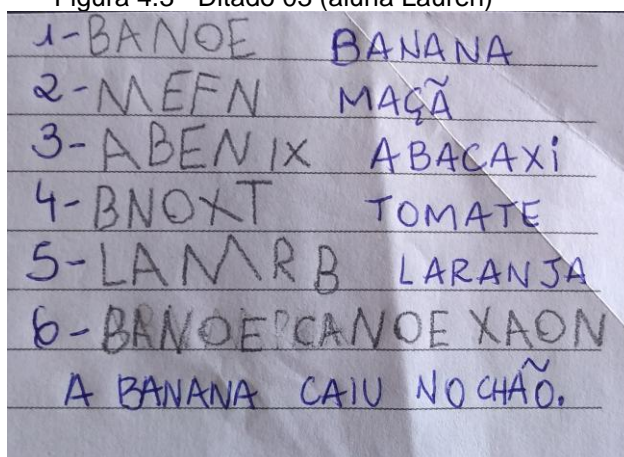 Figura 4.3 - Ditado 03 (aluna Lauren)
1-BANOE BANANA
2-MEFN MAÇÃ
3-ABENIX ABACAXi
4-BNOXT TOMATE
5-LAMRB LARANJA
6-BANOE CANOEXAON
A BANANA CAIU NO CHÃO.